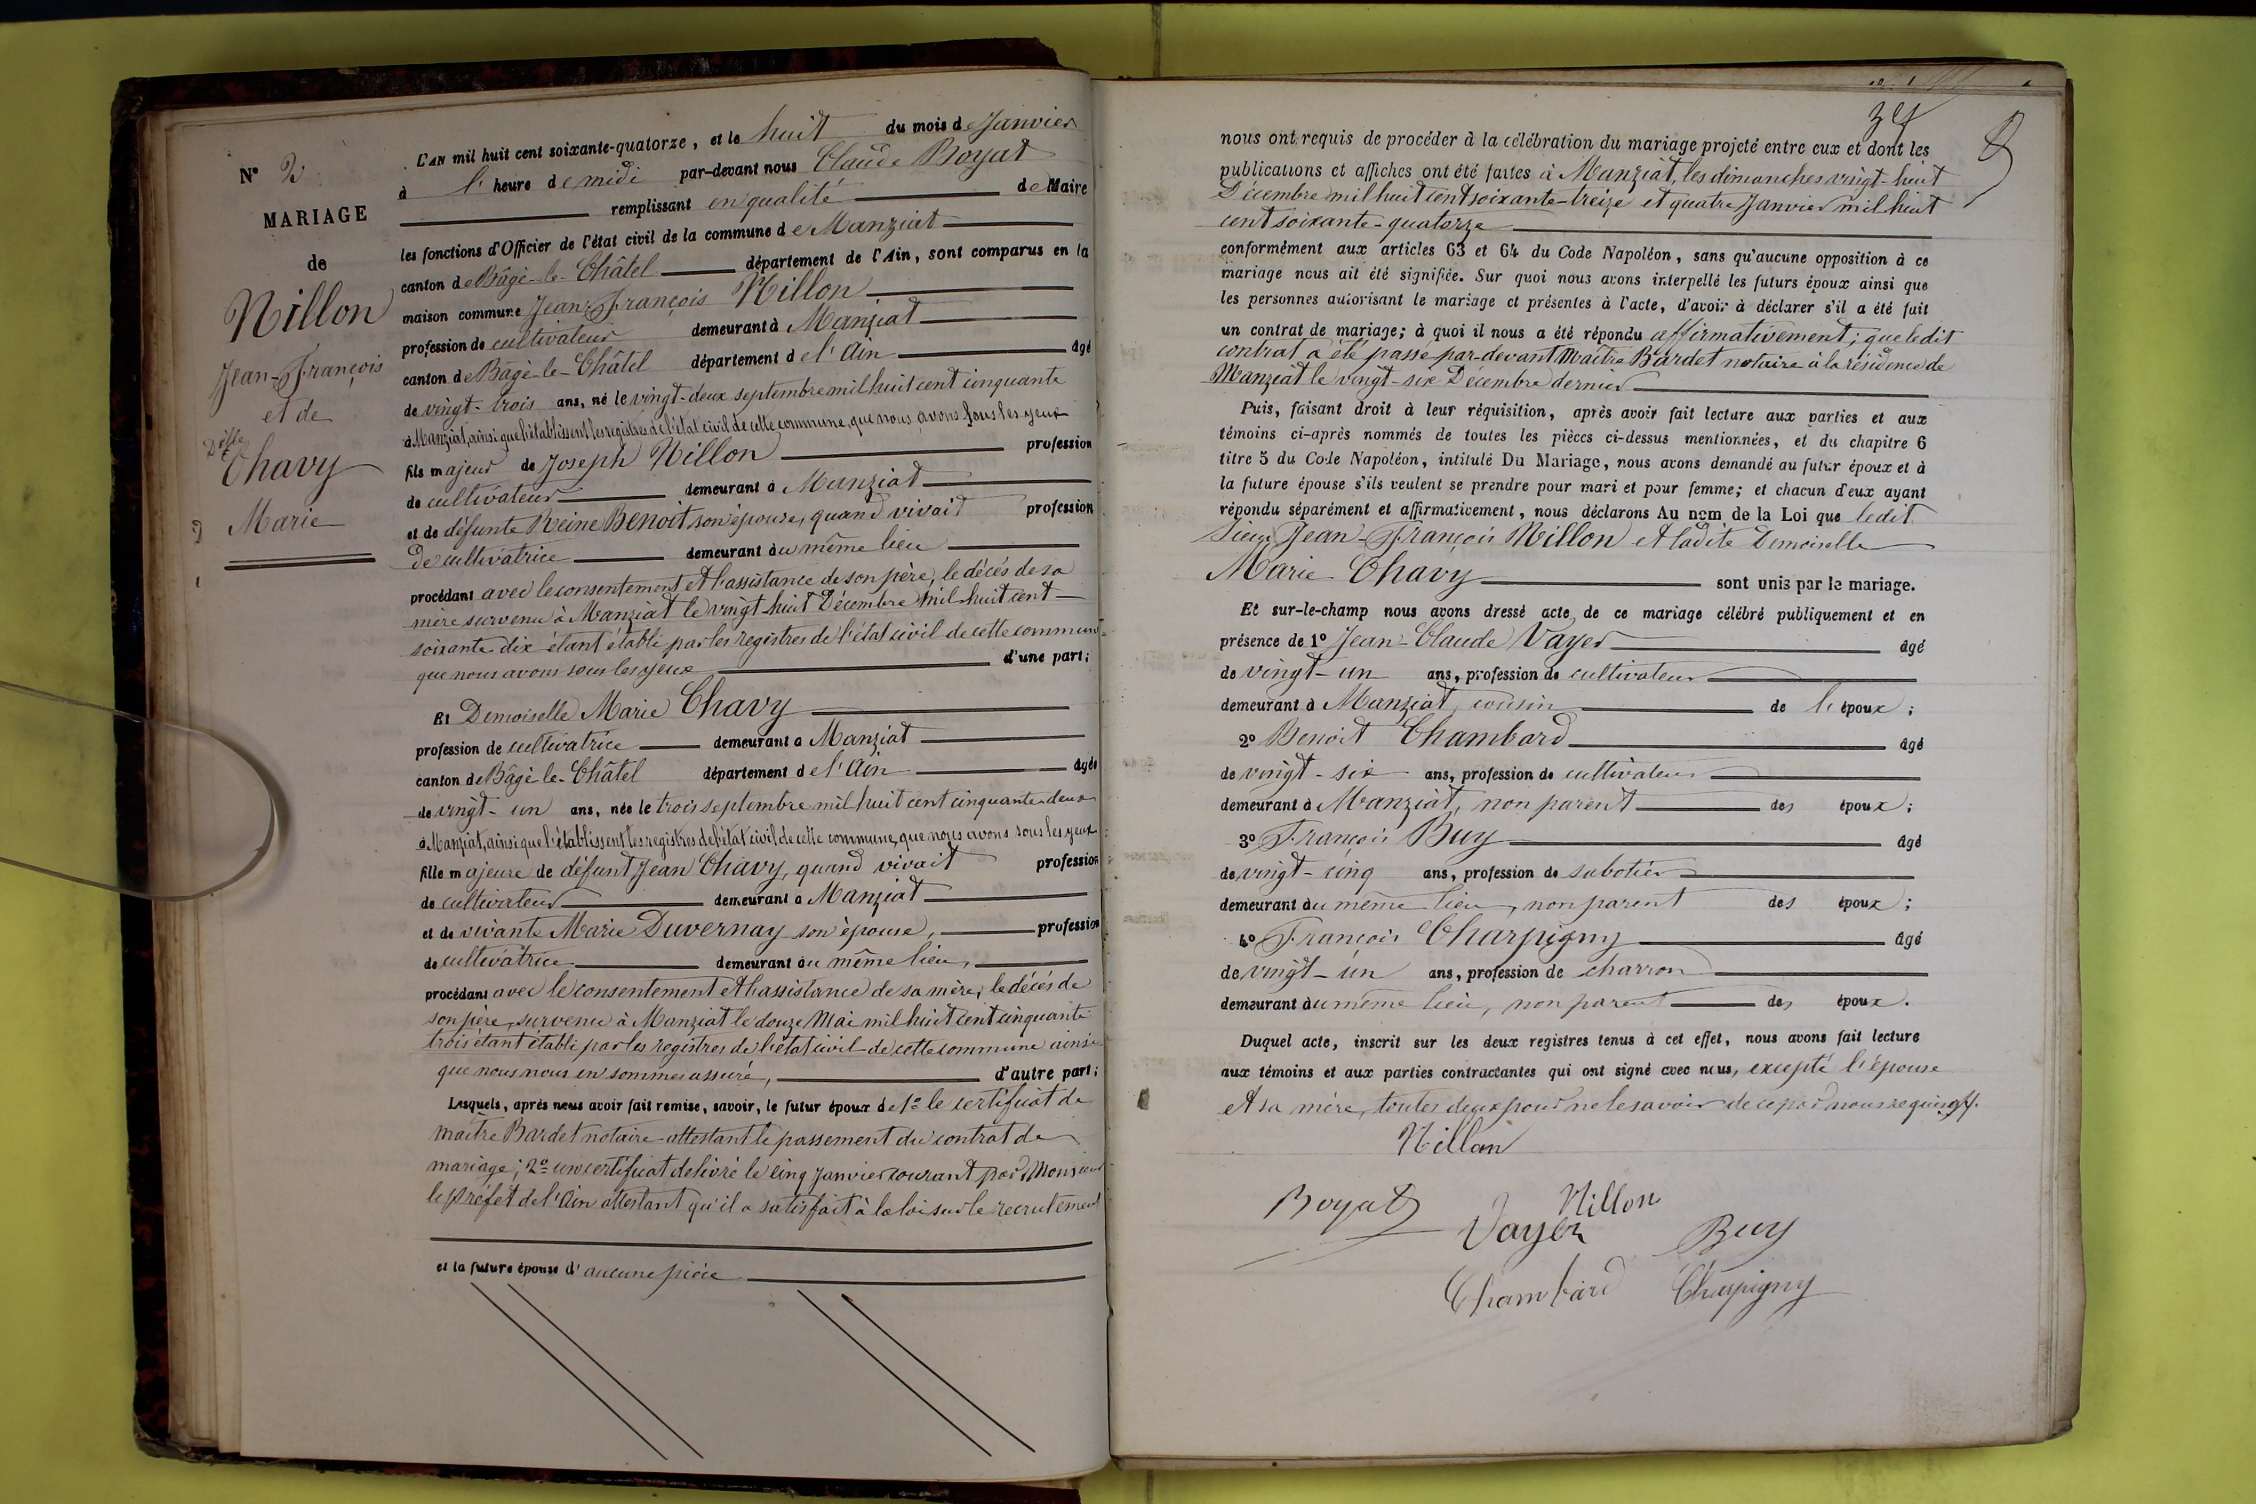 N° 2
MARIAGE
de
Nillon
Jean-François
et de
Delle
Chavy
Marie
L'AN mil huit cent soixante-quatorze, et le huit du mois de Janvier
à l'heure de midi par-devant nous Claude Boyat
remplissant en qualité de Maire
les fonctions d'Officier de l'état civil de la commune de Manziat
canton de Bâgé-le-Châtel département de l'Ain, sont comparus en la
maison commune Jean-François Nillon
profession de cultivateur demeurant à Manziat
canton de Bâgé-le-Châtel département de l'Ain âgé
de vingt-trois ans, né le vingt-deux septembre mil huit cent cinquante
à Manziat, ainsi que l'établissent les registres de l'état civil de cette commune, que nous avons sous les yeux
fils majeur de Joseph Nillon profession
de cultivateur demeurant à Manziat
et de défunte Reine Benoit son épouse, quand vivait profession
de cultivatrice demeurant au même lieu
procédant avec le consentement et l'assistance de son père, le décés de sa
mère survenu à Manziat le vingt huit Décembre mil huit cent
soixante dix étant établi par les registres de l'état civil de cette commune
que nous avons sous les yeux d'une part;
Et Demoiselle Marie Chavy
profession de cultivatrice demeurant à Manziat
canton de Bâgé-le-Châtel département de l'Ain âgée
de vingt-un ans, née le trois septembre mil huit cent cinquante deux
à Manziat, ainsi que l'établissent les registres de l'état civil de cette commune, que nous avons sous les yeux
fille majeure de défunt Jean Chavy, quand vivait profession
de cultivateur demeurant à Manziat
et de vivante Marie Duvernay son épouse, profession
de cultivatrice demeurant au même lieu,
procédant avec le consentement et l'assistance de sa mère, le décés de
son père, survenu à Manziat le douze Mai mil huit cent cinquante
trois étant établi par les registres de l'état civil de cette commune ainsi
que nous nous en sommes assuré, d'autre part;
Lesquels, après nous avoir fait remise, savoir, le futur époux de 1° le certificat de
maître Bardet notaire attestant le passement du contrat de
mariage; 2° un certificat délivré le cinq Janvier courant par Monsieur
le préfet de l'Ain attestant qu'il a satisfait à la loi sur le recrutement
et la future épouse d'aucune pièce
34
nous ont requis de procéder à la célébration du mariage projeté entre eux et dont les
publications et affiches ont été faites à Manziat, les dimanches vingt-huit
Décembre mil huit cent soixante-treize et quatre Janvier mil huit
cent soixante-quatorze
conformément aux articles 63 et 64 du Code Napoléon, sans qu'aucune opposition à ce
mariage nous ait été signifiée. Sur quoi nous avons interpellé les futurs époux ainsi que
les personnes autorisant le mariage et présentes à l'acte, d'avoir à déclarer s'il a été fait
un contrat de mariage; à quoi il nous a été répondu affirmativement; que ledit
contrat a été passé par-devant Maître Bardet notaire à la résidence de
Manziat le vingt-six Décembre dernier
Puis, faisant droit à leur réquisition, après avoir fait lecture aux parties et aux
témoins ci-après nommés de toutes les pièces ci-dessus mentionnées, et du chapitre 6
titre 5 du Code Napoléon, intitulé Du Mariage, nous avons demandé au futur époux et à
la future épouse s'ils veulent se prendre pour mari et pour femme; et chacun d'eux ayant
répondu séparément et affirmativement, nous déclarons Au nom de la Loi que ledit
Sieur Jean-François Nillon et ladite Demoiselle
Marie Chavy sont unis par le mariage.
Et sur-le-champ nous avons dressé acte de ce mariage célébré publiquement et en
présence de 1° Jean-Claude Vayer âgé
de vingt-un ans, profession de cultivateur
demeurant à Manziat, cousin de l'époux;
2° Benoit Chambard âgé
de vingt-six ans, profession de cultivateur
demeurant à Manziat, non parent des époux;
3° François Buy âgé
de vingt-cinq ans, profession de sabotier
demeurant au même lieu, non parent des époux;
4° François Charpigny âgé
de vingt-un ans, profession de charron
demeurant au même lieu, non parent des époux.
Duquel acte, inscrit sur les deux registres tenus à cet effet, nous avons fait lecture
aux témoins et aux parties contractantes qui ont signé avec nous, excepté l'épouse
et sa mère, toutes deux pour ne le savoir de ce par nous requises.
Nillon
Boyat Nillon
Vayer Buy
Chambard Charpigny